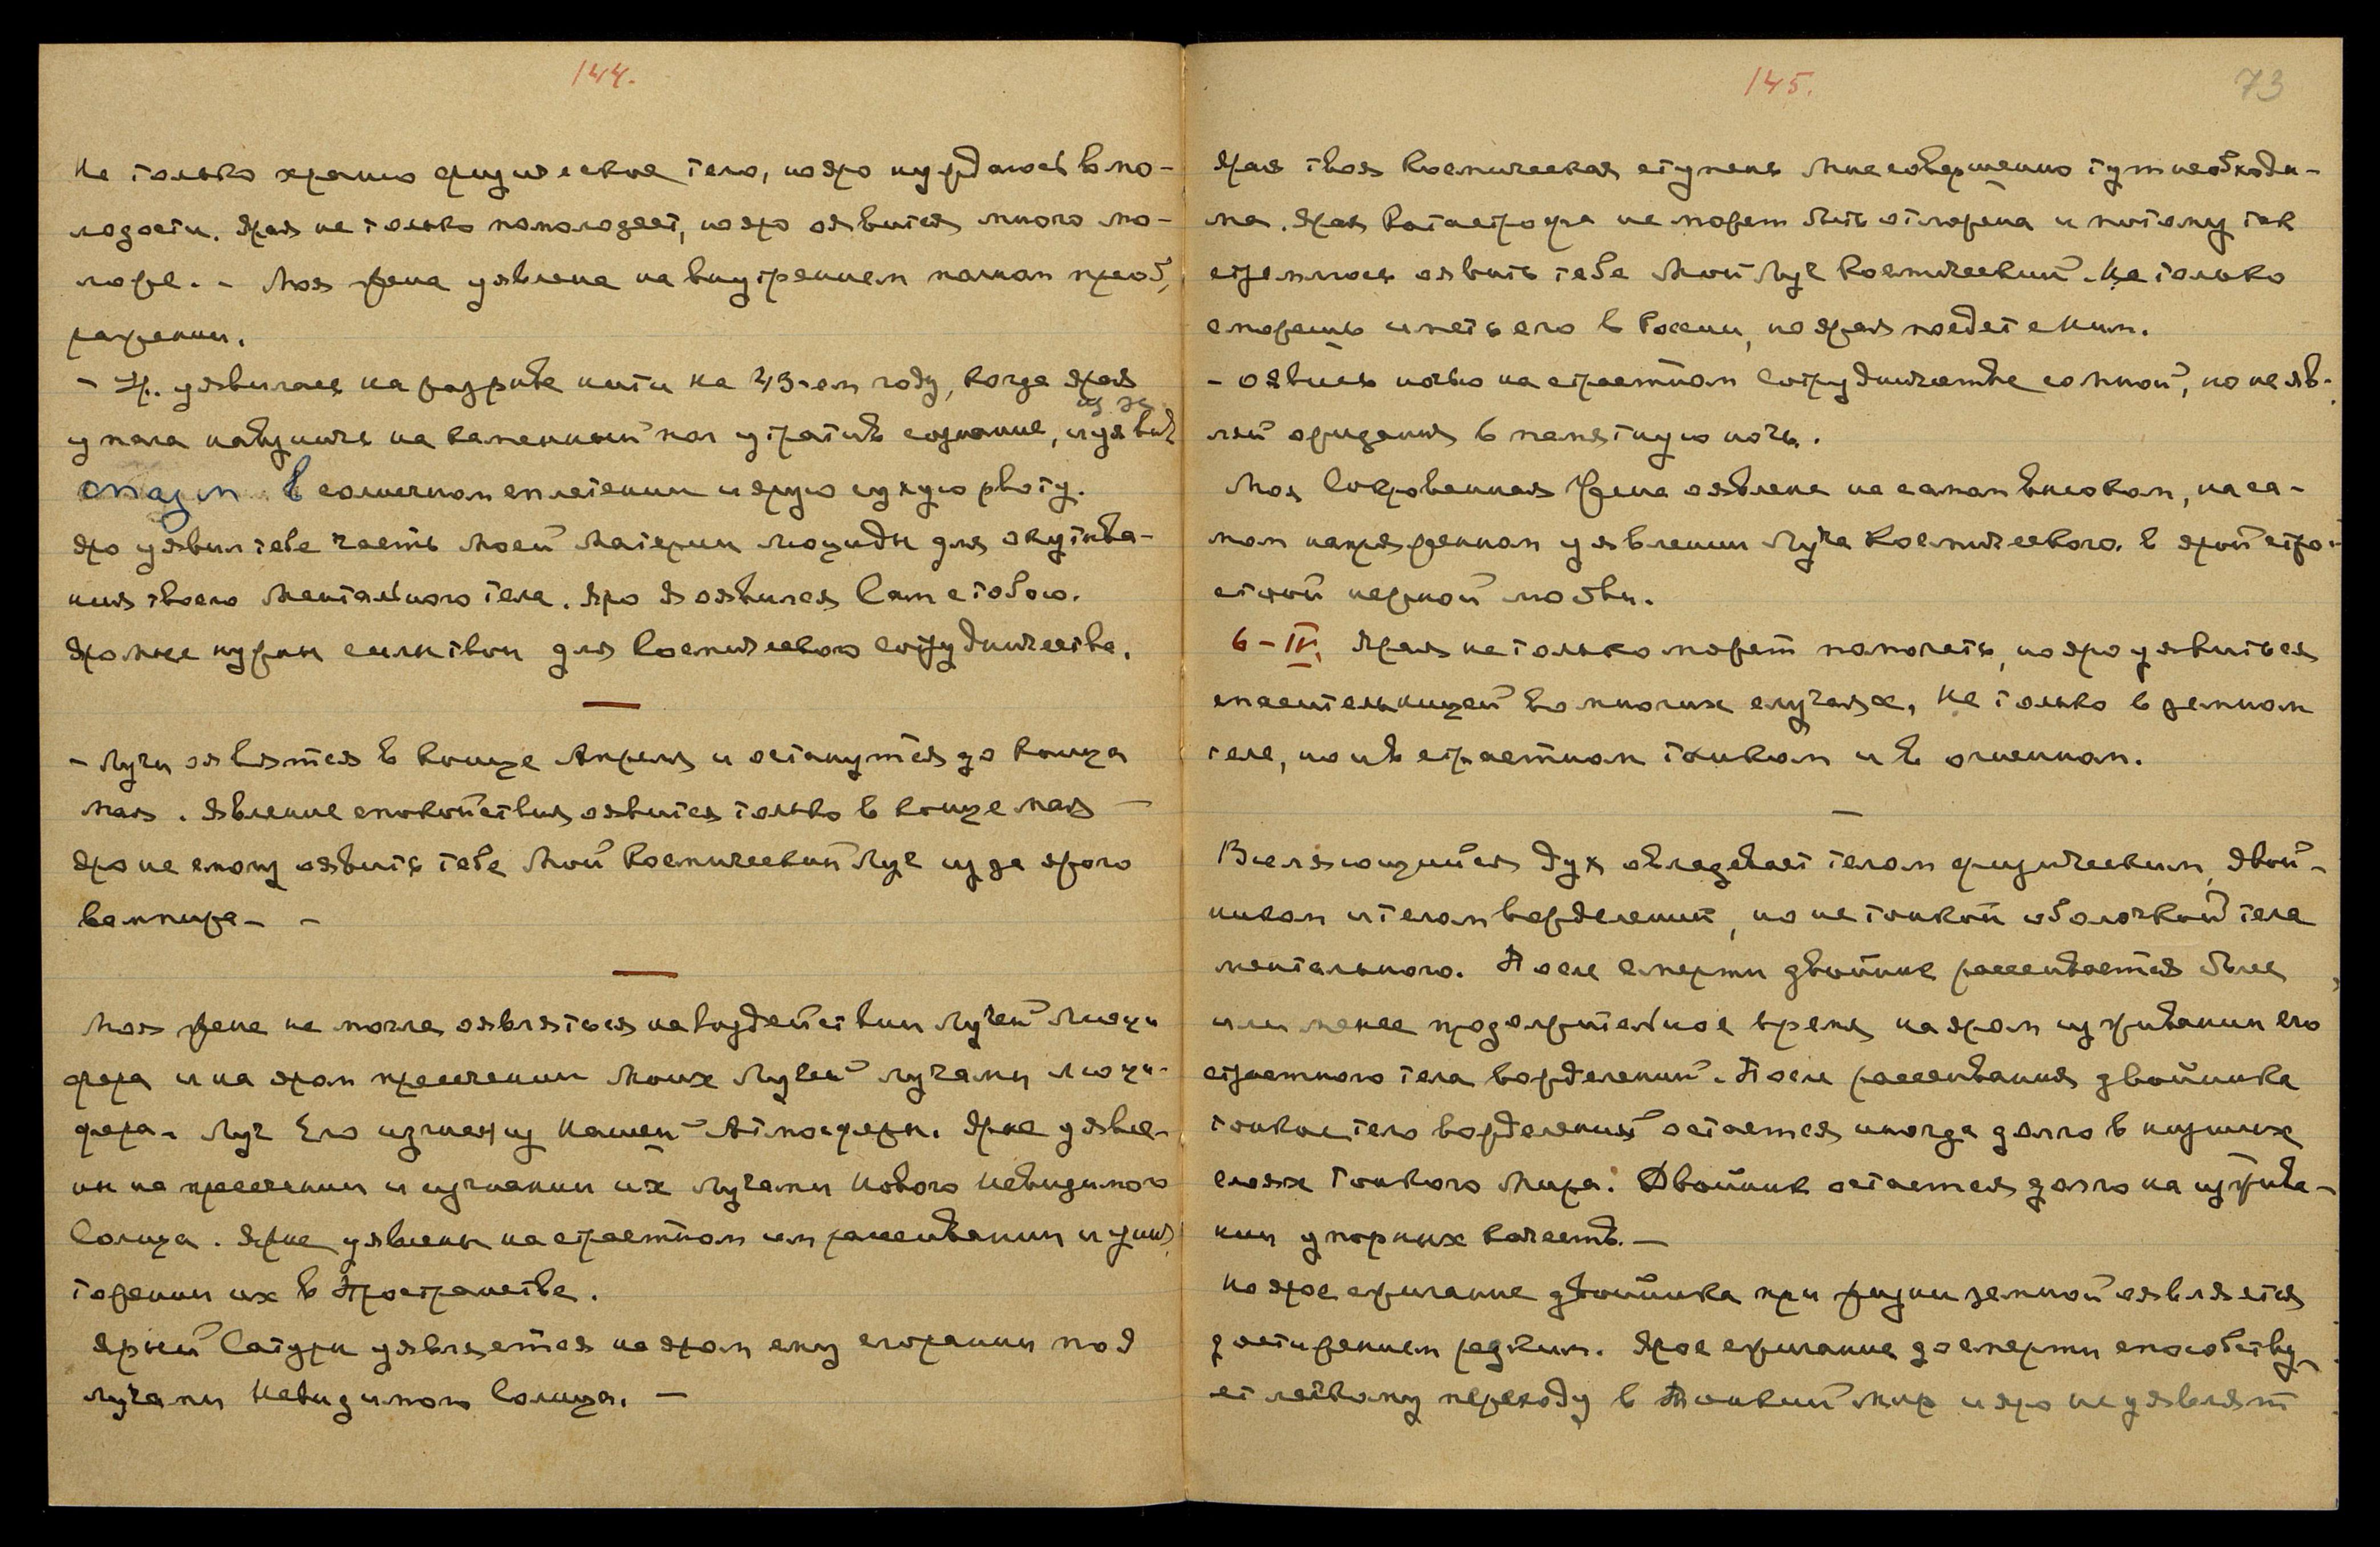 144.
Не только храню физическое тело, но яро нуждаюсь в мо-
лодости. Ярая не только помолодеет, но яро явится много мо-
ложе. - Моя жена уявлена на внутреннем полном преоб,
ражении.
- Ур. уявилась на разрыве нити на 43-ем году, когда ярая
упала навзничь на каменный пол утратив сознание, и уявив
из за
спазм в солнечном сплетении и ярую сухую рвоту.
Яро уявил тебе часть Моей Материи Люциды для окутыва-
ния твоего Ментального тела. Яро Я оявился Сам с тобою.
Яро мне нужны силы твои для Космического сотрудничества.
- Лучи оявятся в конце Апреля и останутся до конца
мая. Явление спокойствия оявится только в конце мая —
Яро не смогу оявить тебе Мой Космический Луч из за ярого
вампира - -
Моя жена не могла оявляться на воздействии Лучей Люци
фера и на яром пресечении Моих Лучей лучами Люци-
фера. Луч Его изгнан из Нашей Атмосферы. Ярые уявле-
ны на пресечении и изгнании их Лучами Нового Невидимого
Солнца. Ярые уявлены на страстном им рассеивании и унич,
тожении их в Пространстве.
Ярый Сатурн уявляется на яром ему сгорании под
лучами Невидимого Солнца. —
145.
73
Ярая твоя Космическая ступень Мне совершенно тут необходи-
ма. Ярая Катастрофа не может быть отложена и потому так
стремлюсь оявить тебе Мой Луч Космический. Не только
сможешь иметь его в России, но ярая поедет с Ним.
- Оявись ночью на страстном сотрудничестве со мной, но не яв-
ляй ожидания в памятную ночь.
Моя Сокровенная Жена оявлена на самом высоком, на са-
мом напряженном уявлении Луча Космического. в ярой стра-
стной нежной любви.
6 - IV. Ярая не только может помогать, но яро уявиться
спасительницей во многих случаях, не только в земном
теле, но и в страстном тонком и в огненном.
Вселяющийся дух овладевает телом физическим, двой-
ником и телом вожделений, но не тонкой оболочкой тела
ментального. После смерти двойник рассеивается более
или менее продолжительное время на яром изживании его
страстного тела вожделений. После рассеивания двойника
тонкое тело вожделений остается иногда долго в низших
слоях Тонкого Мира. Двойник остается долго на изжива-
нии упорных качеств. —
Но ярое сжигание двойника при жизни земной оявляется
достижением редким. Ярое сжигание до смерти способству
ет легкому переходу в Тонкий Мир и яро не уявляет